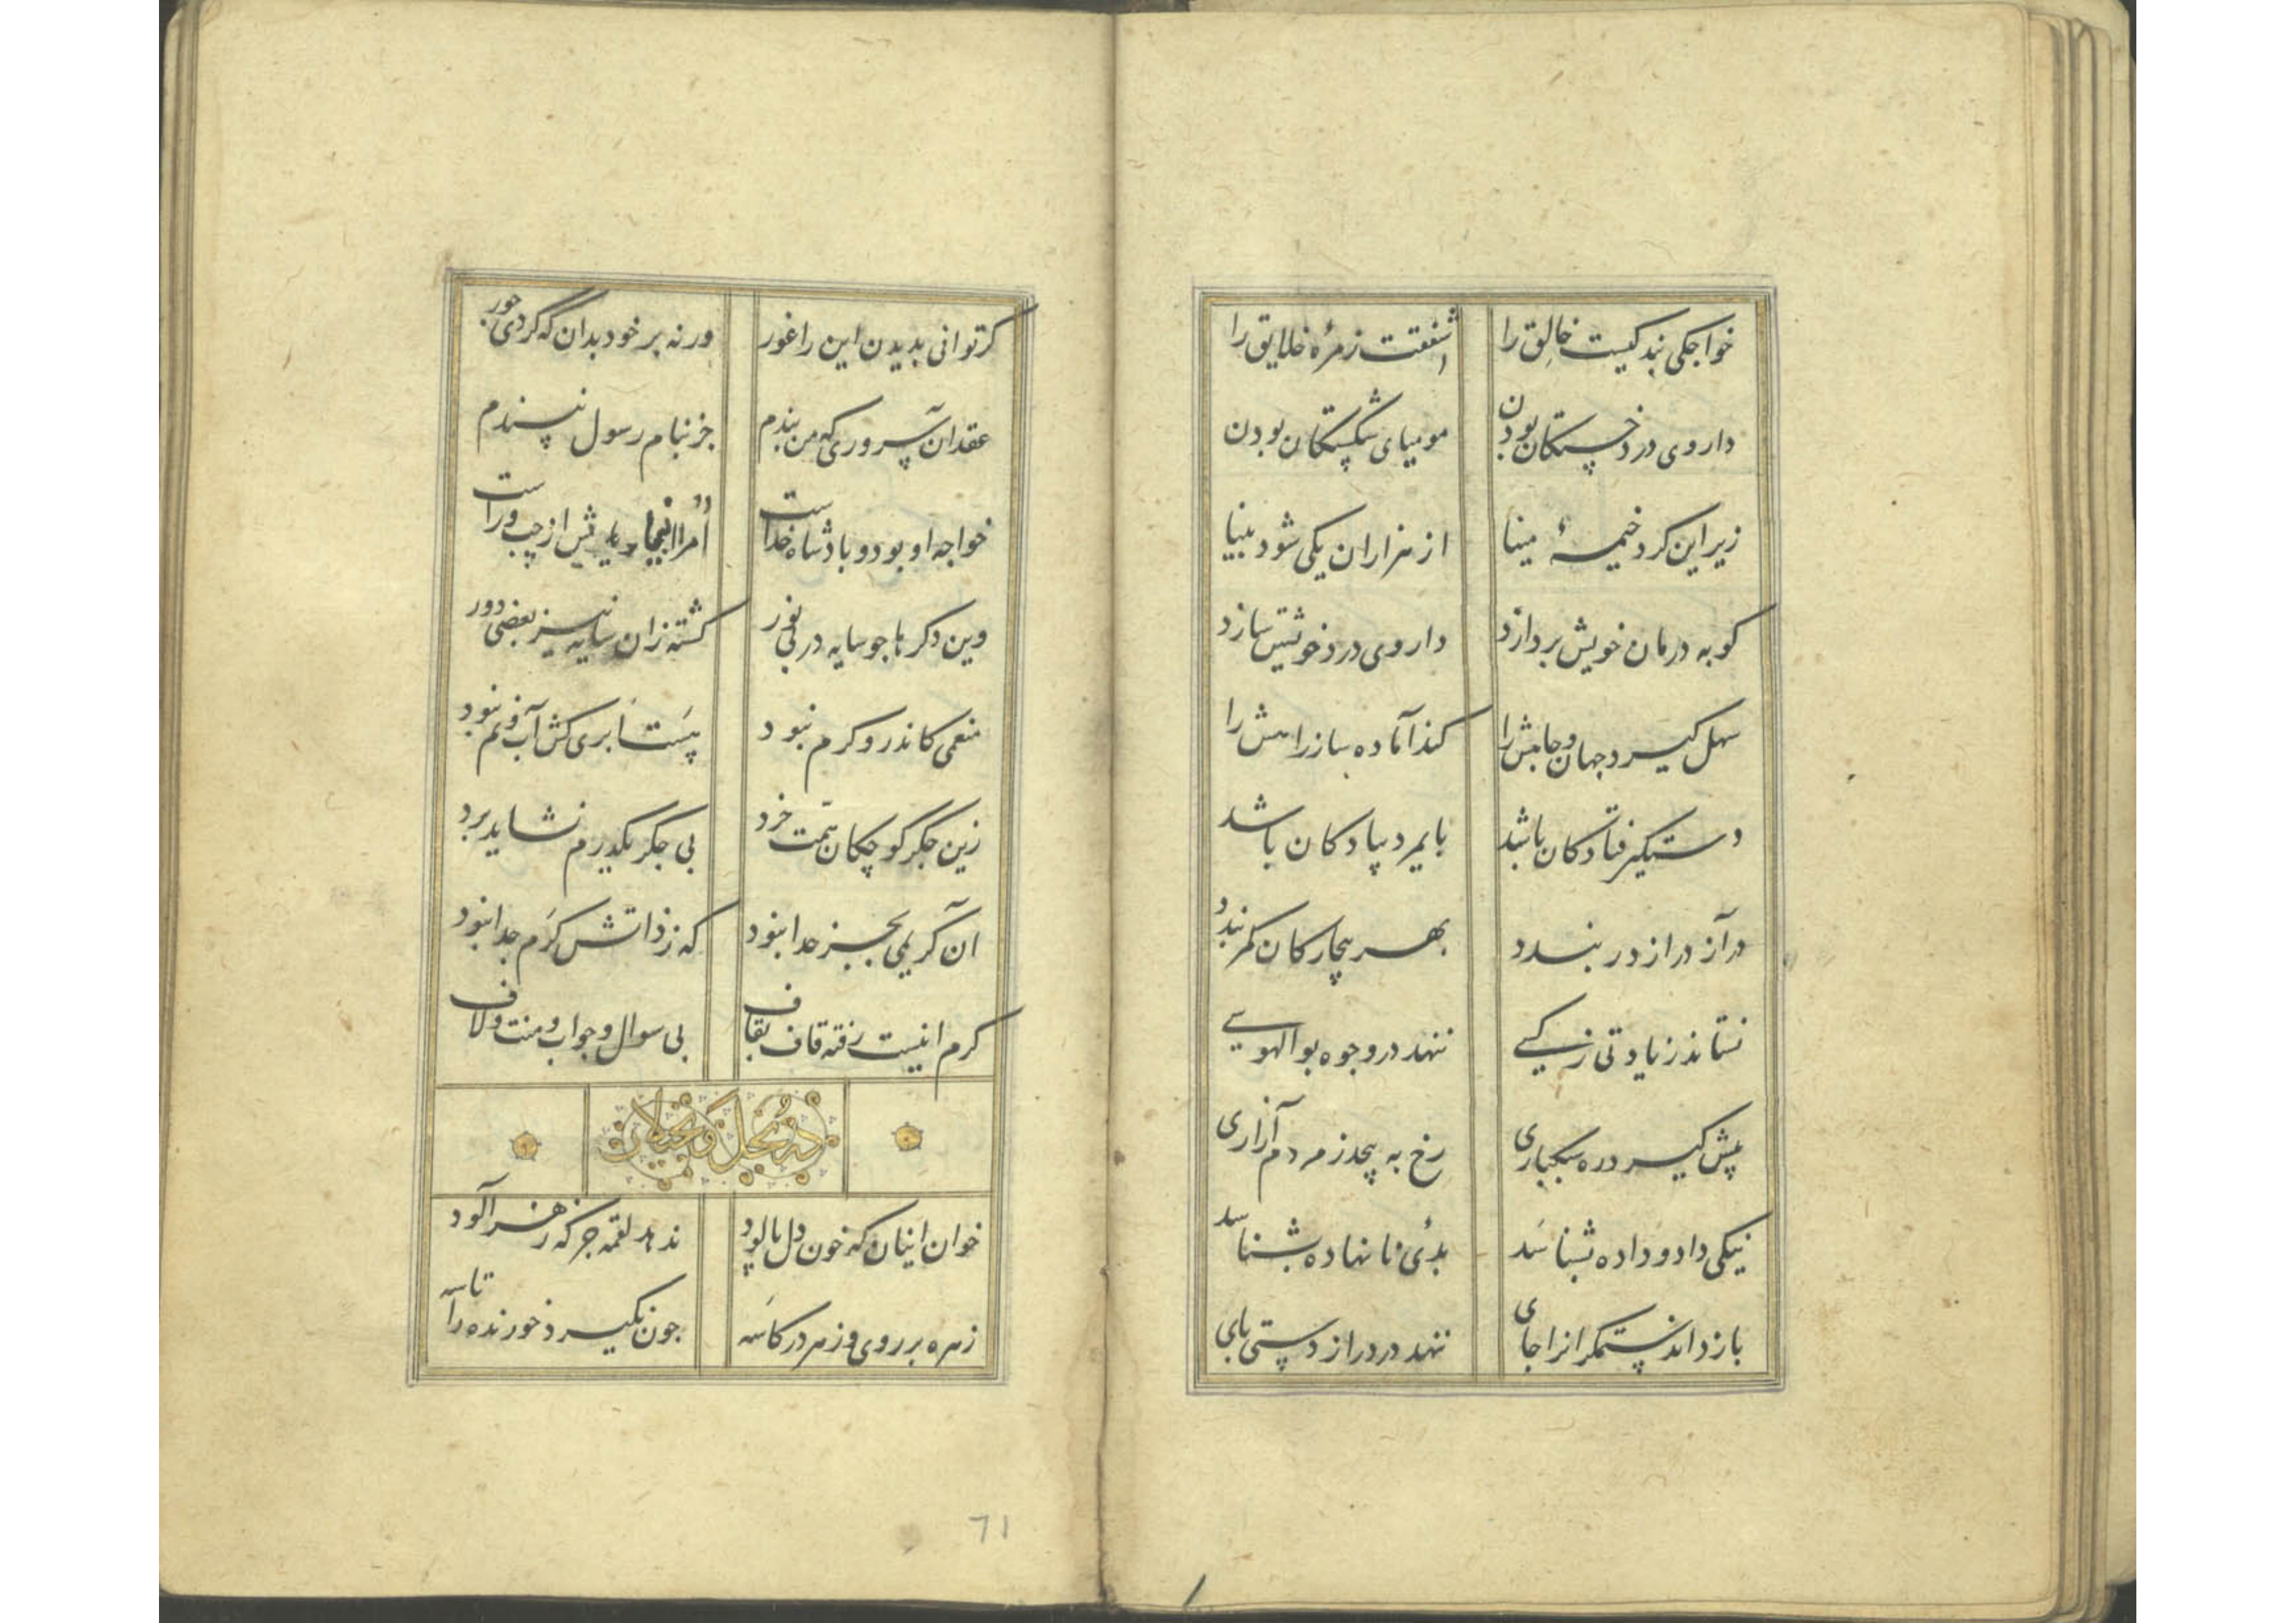 خواجکی بندکیست خالق را شفقت زمرهٔ خلایق را
داروی درد خستکان بودن مومیای شکستکان بودن
زیر این کرد خیمهٔ مینا از هزاران یکی شود بینا
کو به درمان خویش بردازد داروی درد خویشتن سازد
سهل کیرد جهان و جاهش را کند آماده ساز راهش را
دستکیر فتادکان باشد بایمرد پیادکان باشد
در آز دراز دربندد بهر بیچارکان کمر بندد
نستاند ز یادتی ز کسی ننهد در وجوه بوالهوسی
پیش کیرد ره سبکباری رخ به پیچد ز مردم آزاری
نیکی داد و داده بشناسد بدئ نانهاده بشناسد
باز داند ستمکرانرا جای ننهد در دراز دستی بای
کر توانی بدیدن این را غور ورنه بر خود بدان که کردی جور
عقد آن سروری که من بندم جز بنام رسول نپسندم
خواجه او بود و بادشاه خداست امرا از چپ و راست
وین دکرها جو سایه در بی نور کشته زان سایه نیز بعضی دور
منعمی کاندرو کرم نبود پست ابری کش آب و نم نبود
زین جکر کوچکان همت خرد بی جکر یکدرم نشاید برد
آن کریمی بجز خدا نبود که ز ذاتش کرم جدا نبود
کرم اینست رفته قاف بقاف بی سوال و جواب و منت و لاف
در بخل و بخیلان
خوان اینان که خون دل بالود ندهد لقمه جز که زهر آلود
زهره بر روی و زهر در کاسه جون نکیرد خورنده را تاسه
71